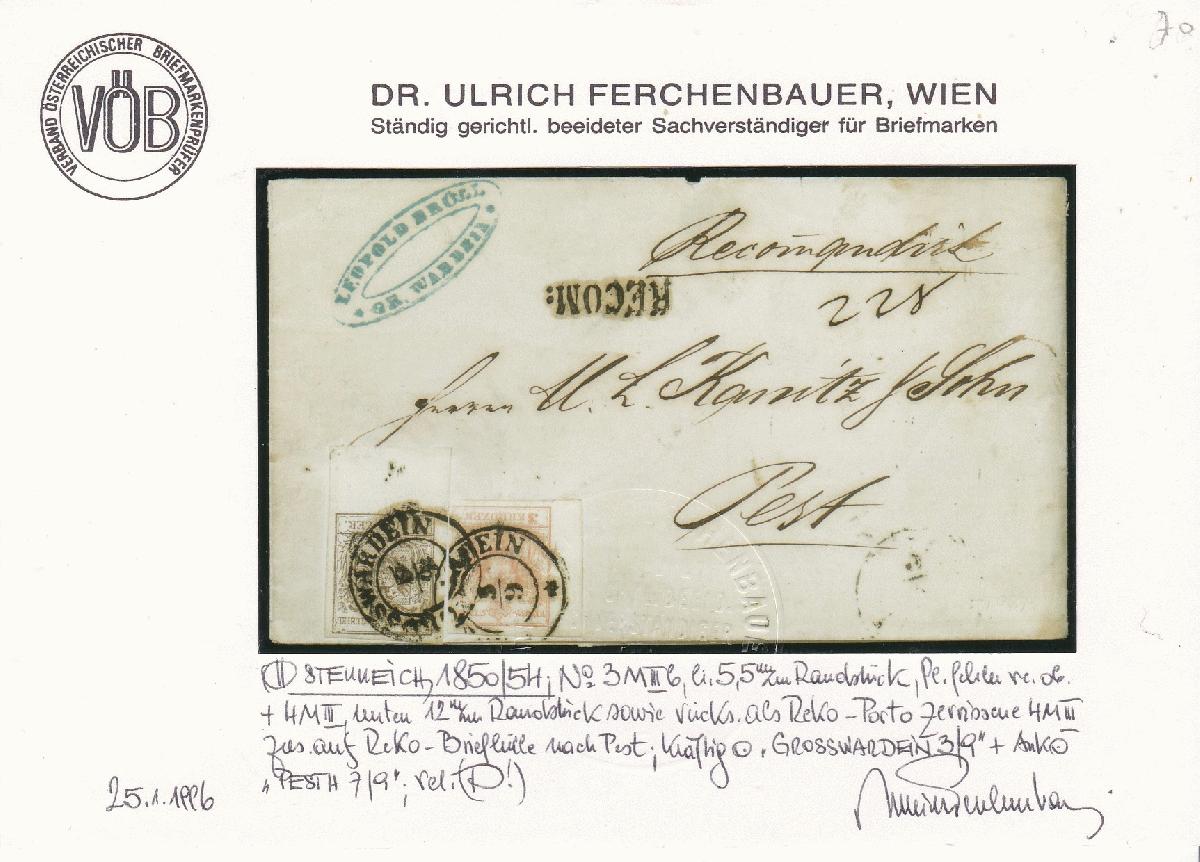 70
VERBAND ÖSTERREICHISCHER BRIEFMARKENPRÜFER
VÖB
DR. ULRICH FERCHENBAUER, WIEN
Ständig gerichtl. beeideter Sachverständiger für Briefmarken
LEOPOLD DRÖLL
GR. WARDEIN
Recomandirt
RECOM:
228
Herrn M. L. Kanitz & Sohn
Pest
GROSSWARDEIN
3/9
3 KREUZER
ÖSTERREICH, 1850/54, No 3 M III b, li. 5,5 mm Randstück, Pl. fehler re. ob.
+ 4 M III, unten 12 mm Randstück sowie rücks. als Reko-Porto zerrissene 4 M III
zus. auf Reko-Briefhülle nach Pest; kräftig ʘ „GROSSWARDEIN 3/9" + Ank ʘ
„PESTH 7/9"; sel. (R!)
25.1.1996